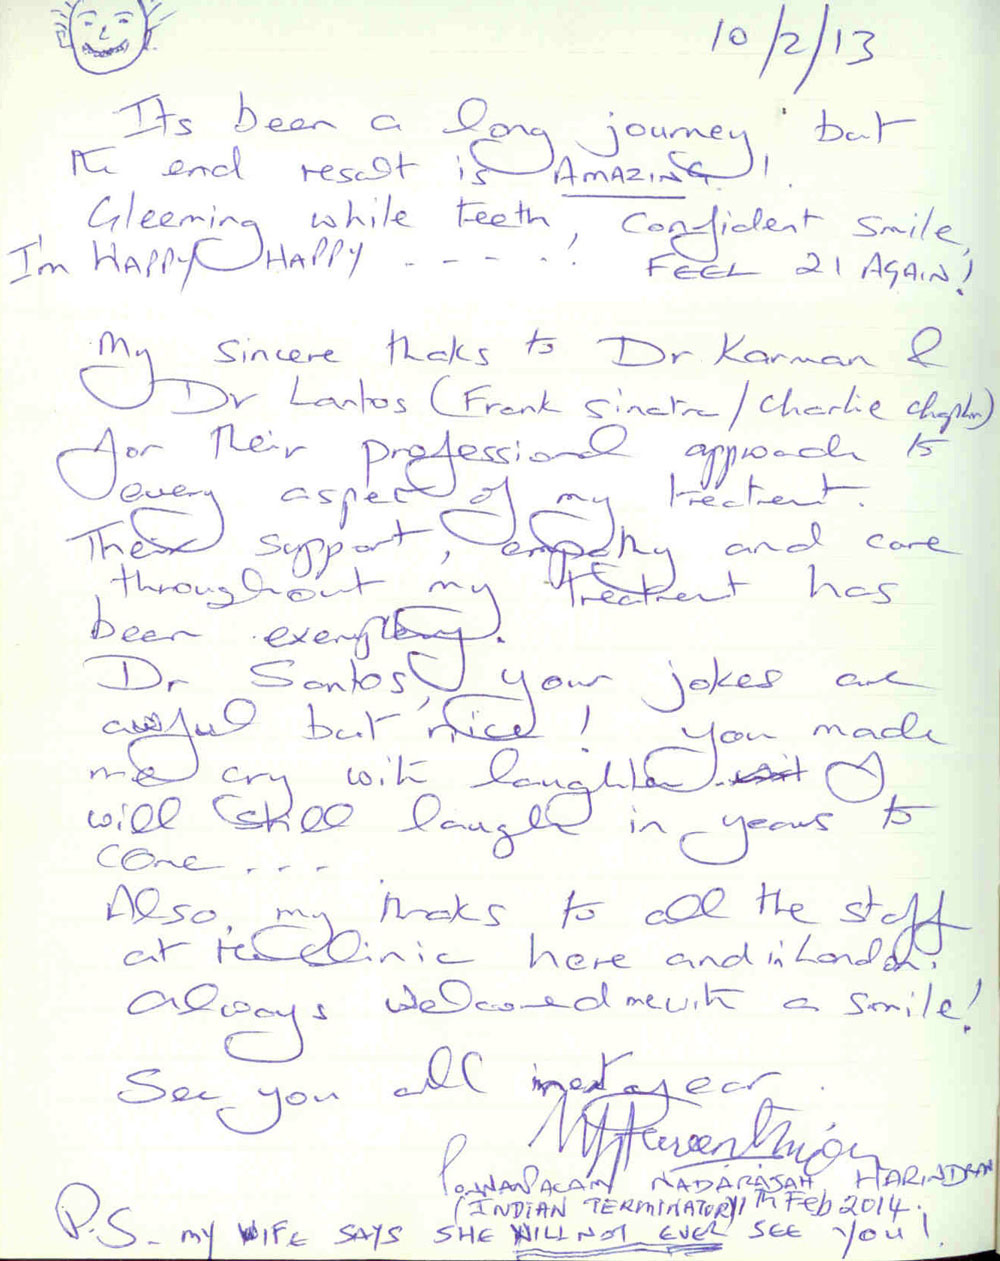 10/2/13
Its been a long journey, but
the end result is AMAZING!
Gleeming while teeth, Confident smile,
I'm HAPPY HAPPY - - - - -! FEEL 21 AGAIN!
My sincere thaks to Dr Karman &
Dr Lantos (Frank Sinatra / Charlie Chaplin)
for their professional approach to
every aspect of my treatment.
Their support, empathy and care
throughout my treatment has
been exemplary.
Dr Santos, your jokes are
awful but nice! You made
me cry with laughter I
will still laugh in years to
come . . . .
Also, my thaks to all the staff
at the clinic here and in London.
Always welcomed me with a smile!
See you all next year.
NADARAJAH HARINDRAN
(INDIAN TERMINATOR) 11th Feb 2014.
P.S - MY WIFE SAYS SHE WILL NOT EVER SEE YOU!